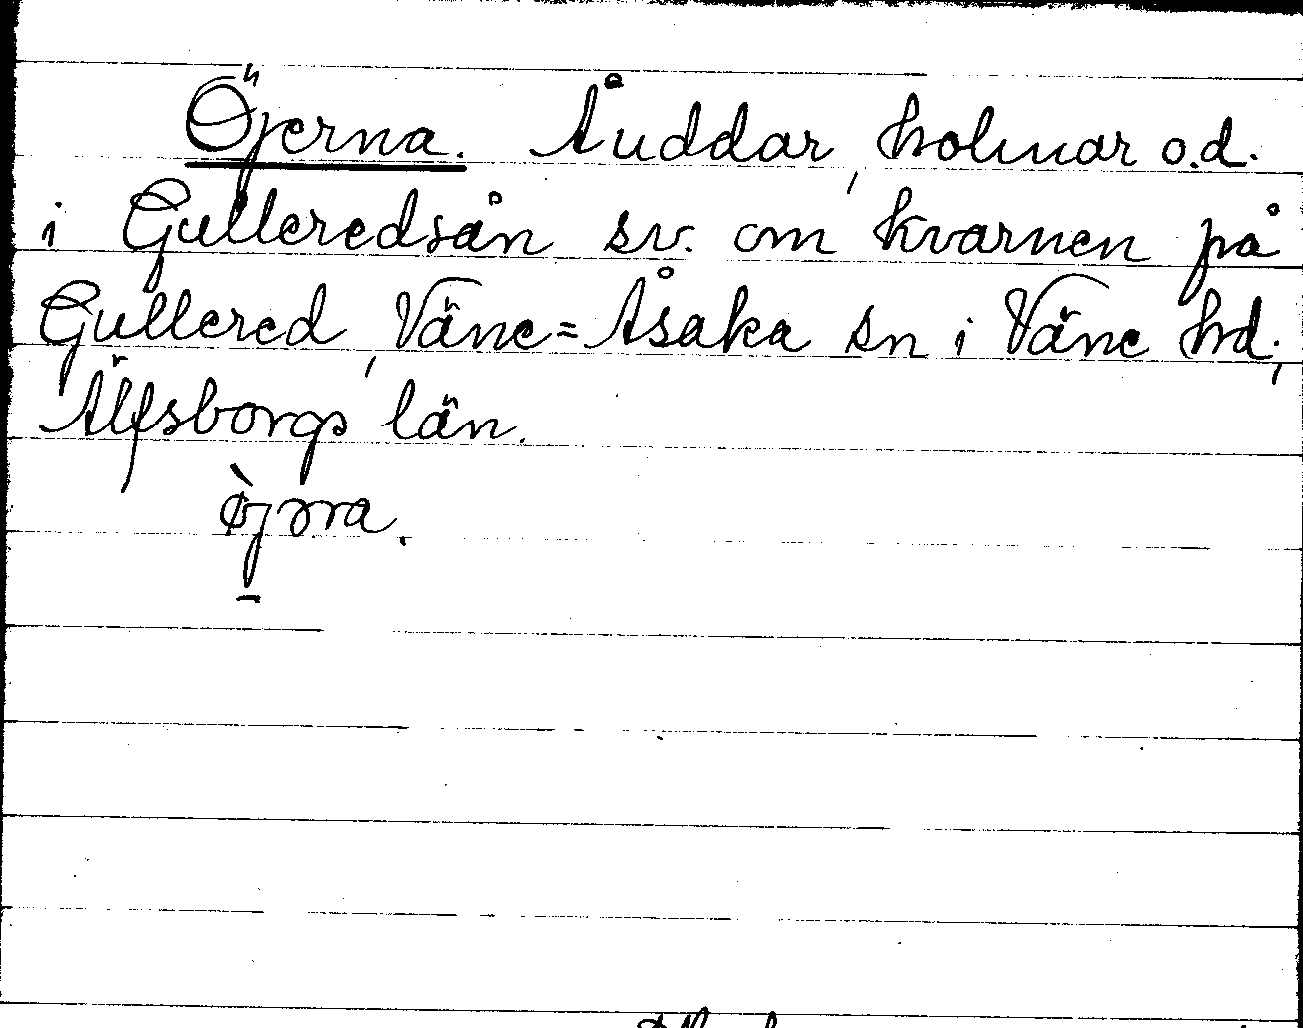 Öjerna. Åuddar, holmar o.d.
i Gulleredsån sv. om kvarnen på
Gullered, Väne=Åsaka sn i Väne hd,
Älfsborgs län.